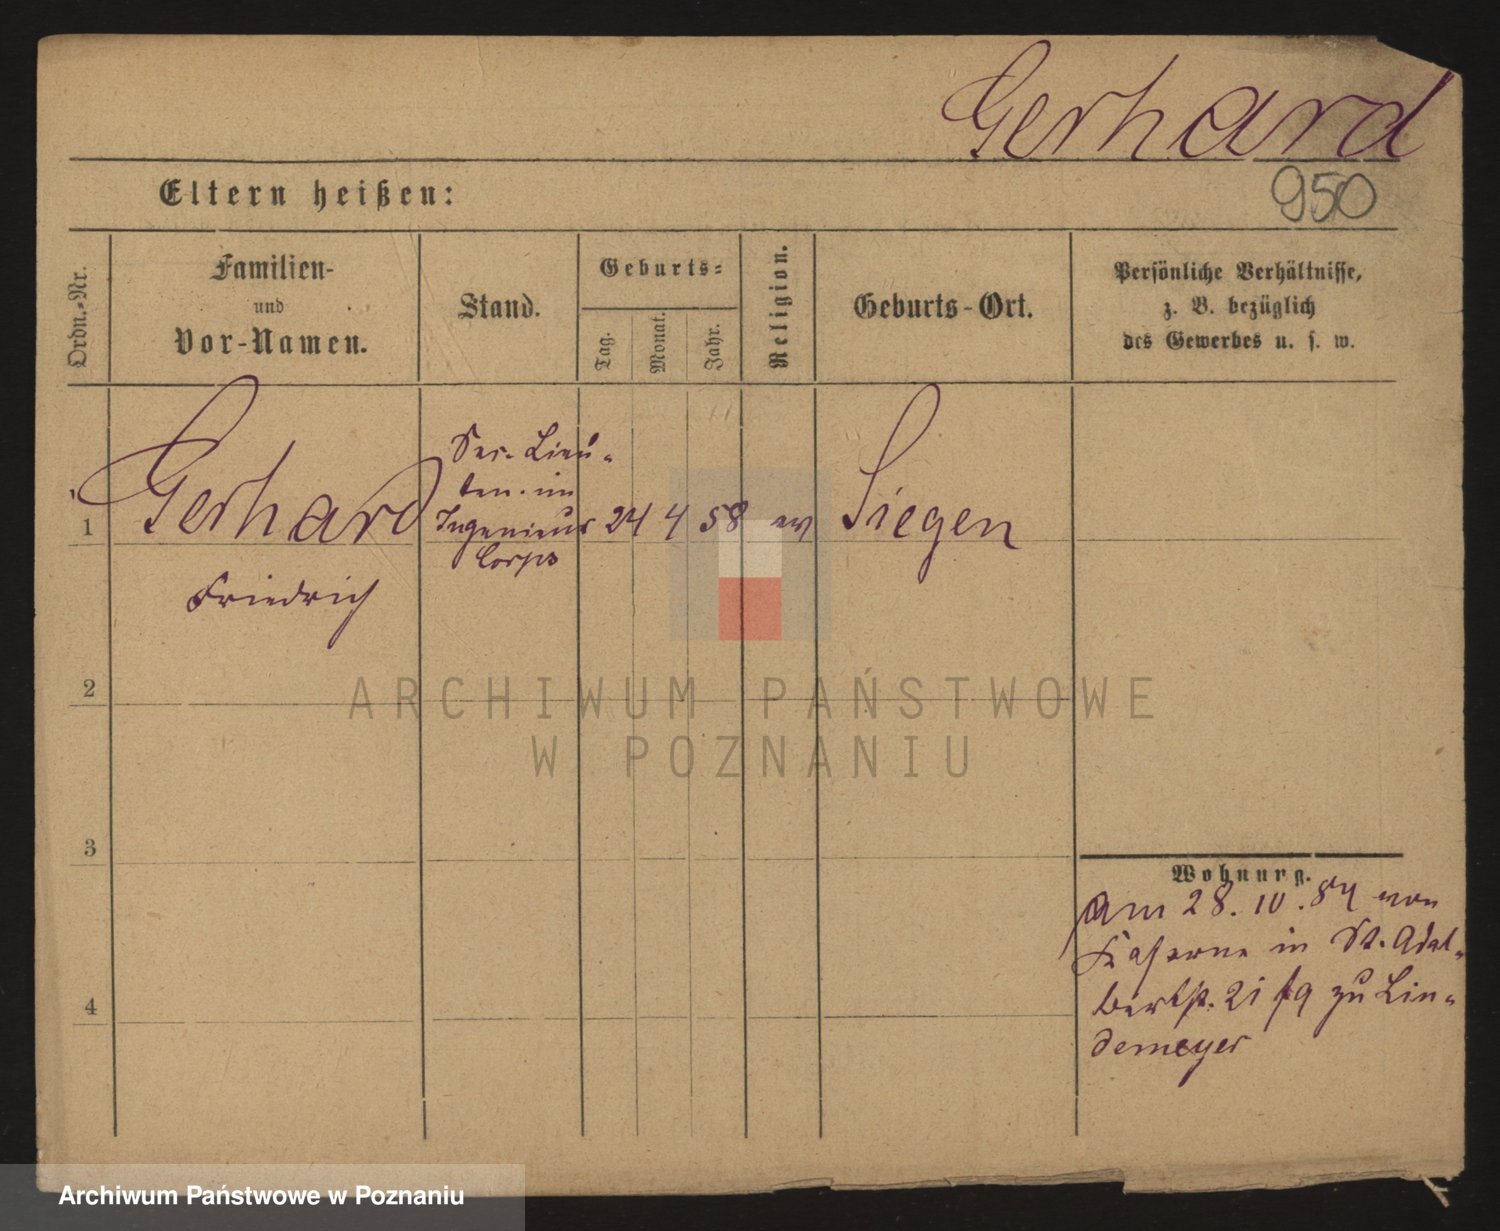 Gerhard
950
Eltern heißen:
Ordn.-Nr.
Familien-
und
Vor-Namen.
Stand.
Geburts-
Tag.
Monat.
Jahr.
Religion.
Geburts-Ort.
Persönliche Verhältnisse,
z. B. bezüglich
des Gewerbes u. s. w.
1
Gerhard
Friedrich
Sec. Lieu-
ten. im
Ingenieur
Corps
24 4 58
ev
Siegen
2
3
4
Wohnung.
Am 28. 10. 84 von
Kaserne in St. Adal-
bertst. 21/29 zu Lin-
demeyer
ARCHIWUM PAŃSTWOWE
W POZNANIU
Archiwum Państwowe w Poznaniu